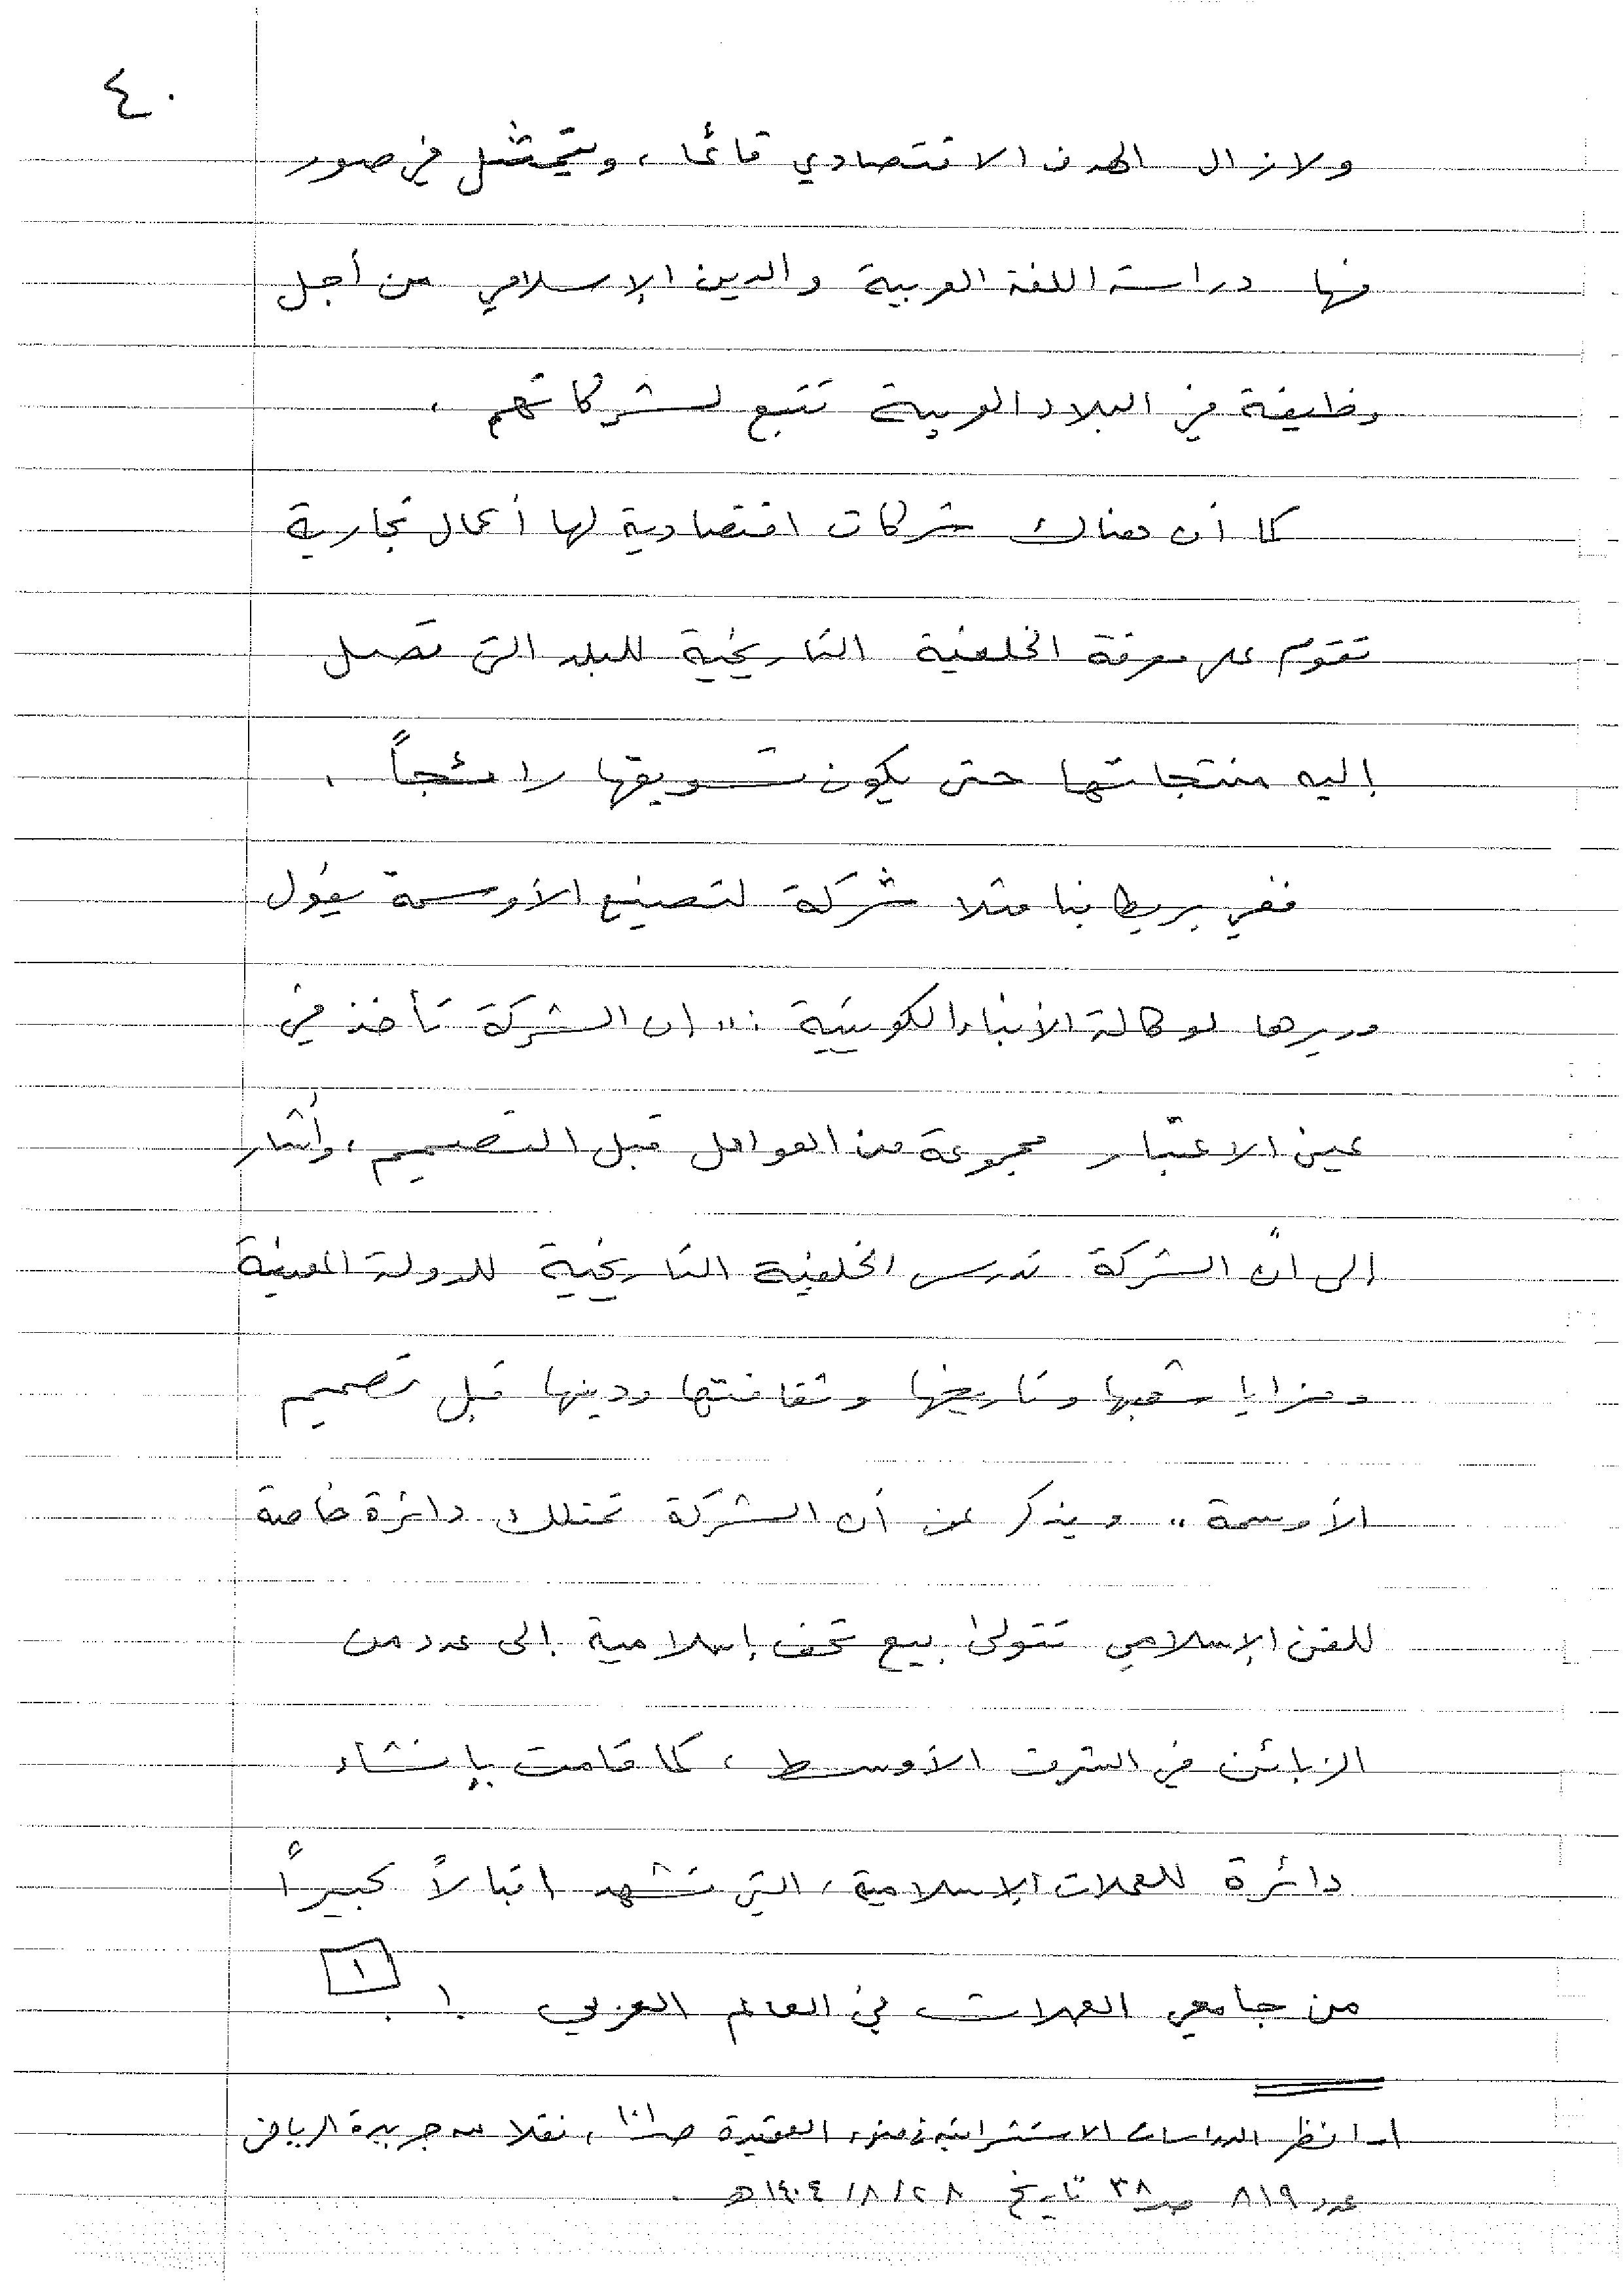 ٤٠
ولازال الهدف الاقتصادي قائما ، ويتمثل في صور
منها دراسة اللغة العربية والدين الإسلامي من أجل
وظيفة في البلاد العربية تتبع لشركاتهم .
كما أن هناك شركات اقتصادية لها أعمال تجارية
تقوم على معرفة الخلفية التاريخية للبلد التي تصل
إليه منتجاتها حتى يكون تسويقها رائجاً .
ففي بريطانيا مثلا شركة لتصنيع الأوسمة يقول
مديرها لوكالة الأنباء الكويتية : " إن الشركة تأخذ في
عين الاعتبار مجموعة من العوامل قبل التصميم ، وأشار
إلى أن الشركة تدرس الخلفية التاريخية للدولة المعنية
ومزايا شعبها وتاريخها وثقافتها ودينها قبل تصميم
الأوسمة " ويذكر عن أن الشركة تمتلك دائرة خاصة
للفن الإسلامي تتولى بيع تحف إسلامية إلى عدد من
الزبائن في الشرق الأوسط ، كما قامت بإنشاء
دائرة للعملات الإسلامية ، التي تشهد اقبالاً كبيراً
من جامعي العملات في العالم العربي ! . ١
١ـ انظر الدراسات الاستشراقية في ضوء العقيدة صـ ١٠١ ، نقلا من جريدة الرياض
عدد ٨١٩ صـ ٣٨ تاريخ ٢٨ /٨ /١٤٠٤ هـ .